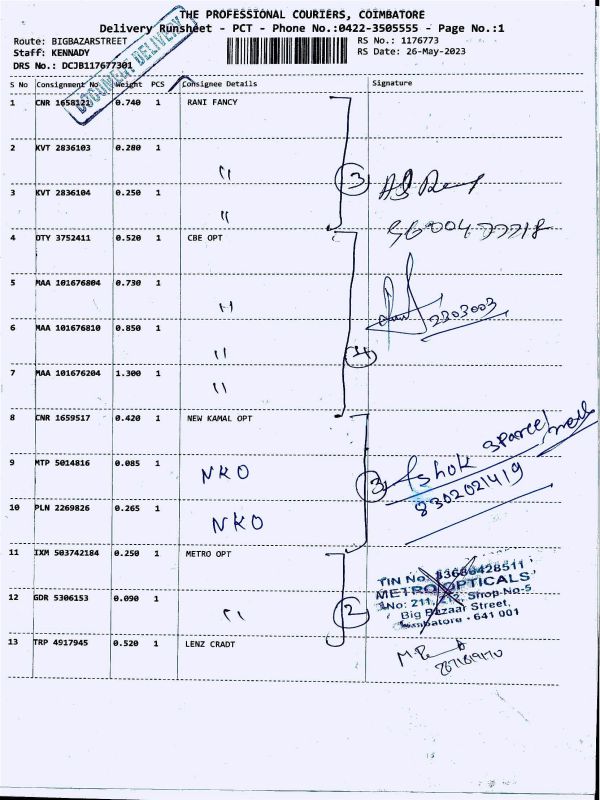 THE PROFESSIONAL COURIERS, COIMBATORE
Delivery Runsheet - PCT - Phone No.:0422-3505555 - Page No.:1
Route: BIGBAZARSTREET
RS No.: 1176773
Staff: KENNADY
RS Date: 26-May-2023
DRS No.: DCJB117677301
DOCUMENT DELIVERY
S No Consignment No Weight PCS Consignee Details Signature
1 CNR 1658121 0.740 1 RANI FANCY
2 KVT 2836103 0.280 1 "
3 KVT 2836104 0.250 1 "
3
4 DTY 3752411 0.520 1 CBE OPT
5 MAA 101676804 0.730 1 "
2203003
6 MAA 101676810 0.850 1 "
4
7 MAA 101676204 1.300 1 "
8 CNR 1659517 0.420 1 NEW KAMAL OPT
3 Parcel
9 MTP 5014816 0.085 1 NKO
3 Ashok
8302021419
10 PLN 2269826 0.265 1 NKO
11 IXM 503742184 0.250 1 METRO OPT
TIN No. 33680428511
METRO OPTICALS
No: 211, Shop No-5
12 GDR 5306153 0.090 1 "
2
Big Bazaar Street,
Coimbatore - 641 001
13 TRP 4917945 0.520 1 LENZ CRADT